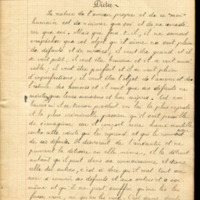 Dictée
La nature de l'amour propre et de ce moi
humain est de n'aimer que soi et de ne consi
rer que soi. Mais que fera-t-il, il ne saurait
empêcher que cet objet qu'il aime ne soit plein
de défauts et de misères, il veut être grand et il
se voit petit, il veut être heureux et il se voit misé
rable, il veut être parfait et il se voit plein
d'imperfections, il veut être l'objet de l'amour et de
l'estime des hommes et il voit que ses défauts ne
méritent que leur aversion et leur mépris. Cet em
barras où il se trouve produit en lui la plus injuste
et la plus criminelle passion qu'il soit possible
de s'imaginer car il conçoit une haine mortelle
contre cette vérité qui le reprend et qui le convainc
de ses défauts. Il désirerait de l'anéantir et ne
pouvant la détruire en elle même, il la détruit
autant qu'il peut dans sa connaissance et dans
celle des autres, c'est à dire qu'il met tout son
soin à couvrir ses défauts et aux autres et à soi
même et qu'il ne peut souffrir qu'on les lui
fasse voir, ni qu'on les